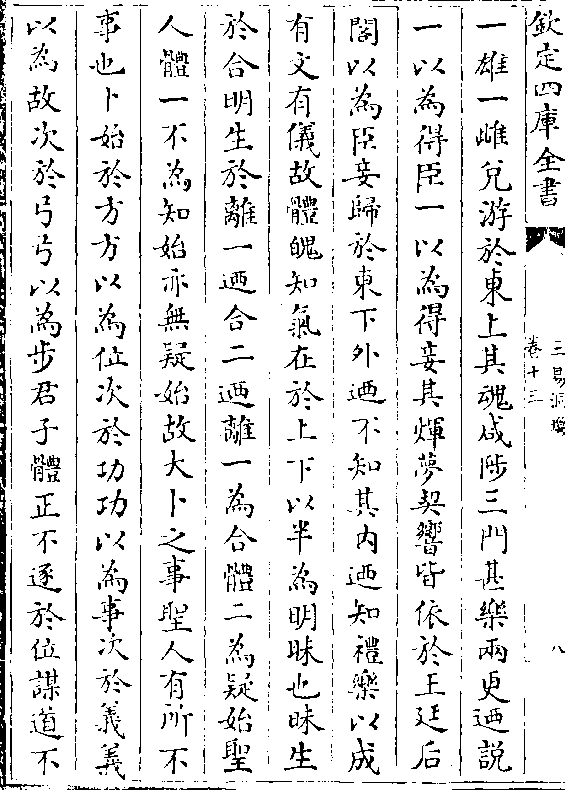 欽定四庫全書
三易洞璣
卷十三
八
一雄一雌兌游於東上其魂咸陟三門甚樂兩更迺説
一以為得臣一以為得妾其煇夢契響皆依於王廷后
閤以為臣妾歸於東下外迺不知其内迺知禮樂以成
有文有儀故體䰟知氣在於上下以半為明昧也昧生
於合明生於離一迺合二迺離一為合體二為疑始聖
人體一不為知始亦無疑始故大卜之事聖人有所不
事也卜始於方方以為位次於功功以為事次於義義
以為故次於弓弓以為步君子體正不逐於位謀道不